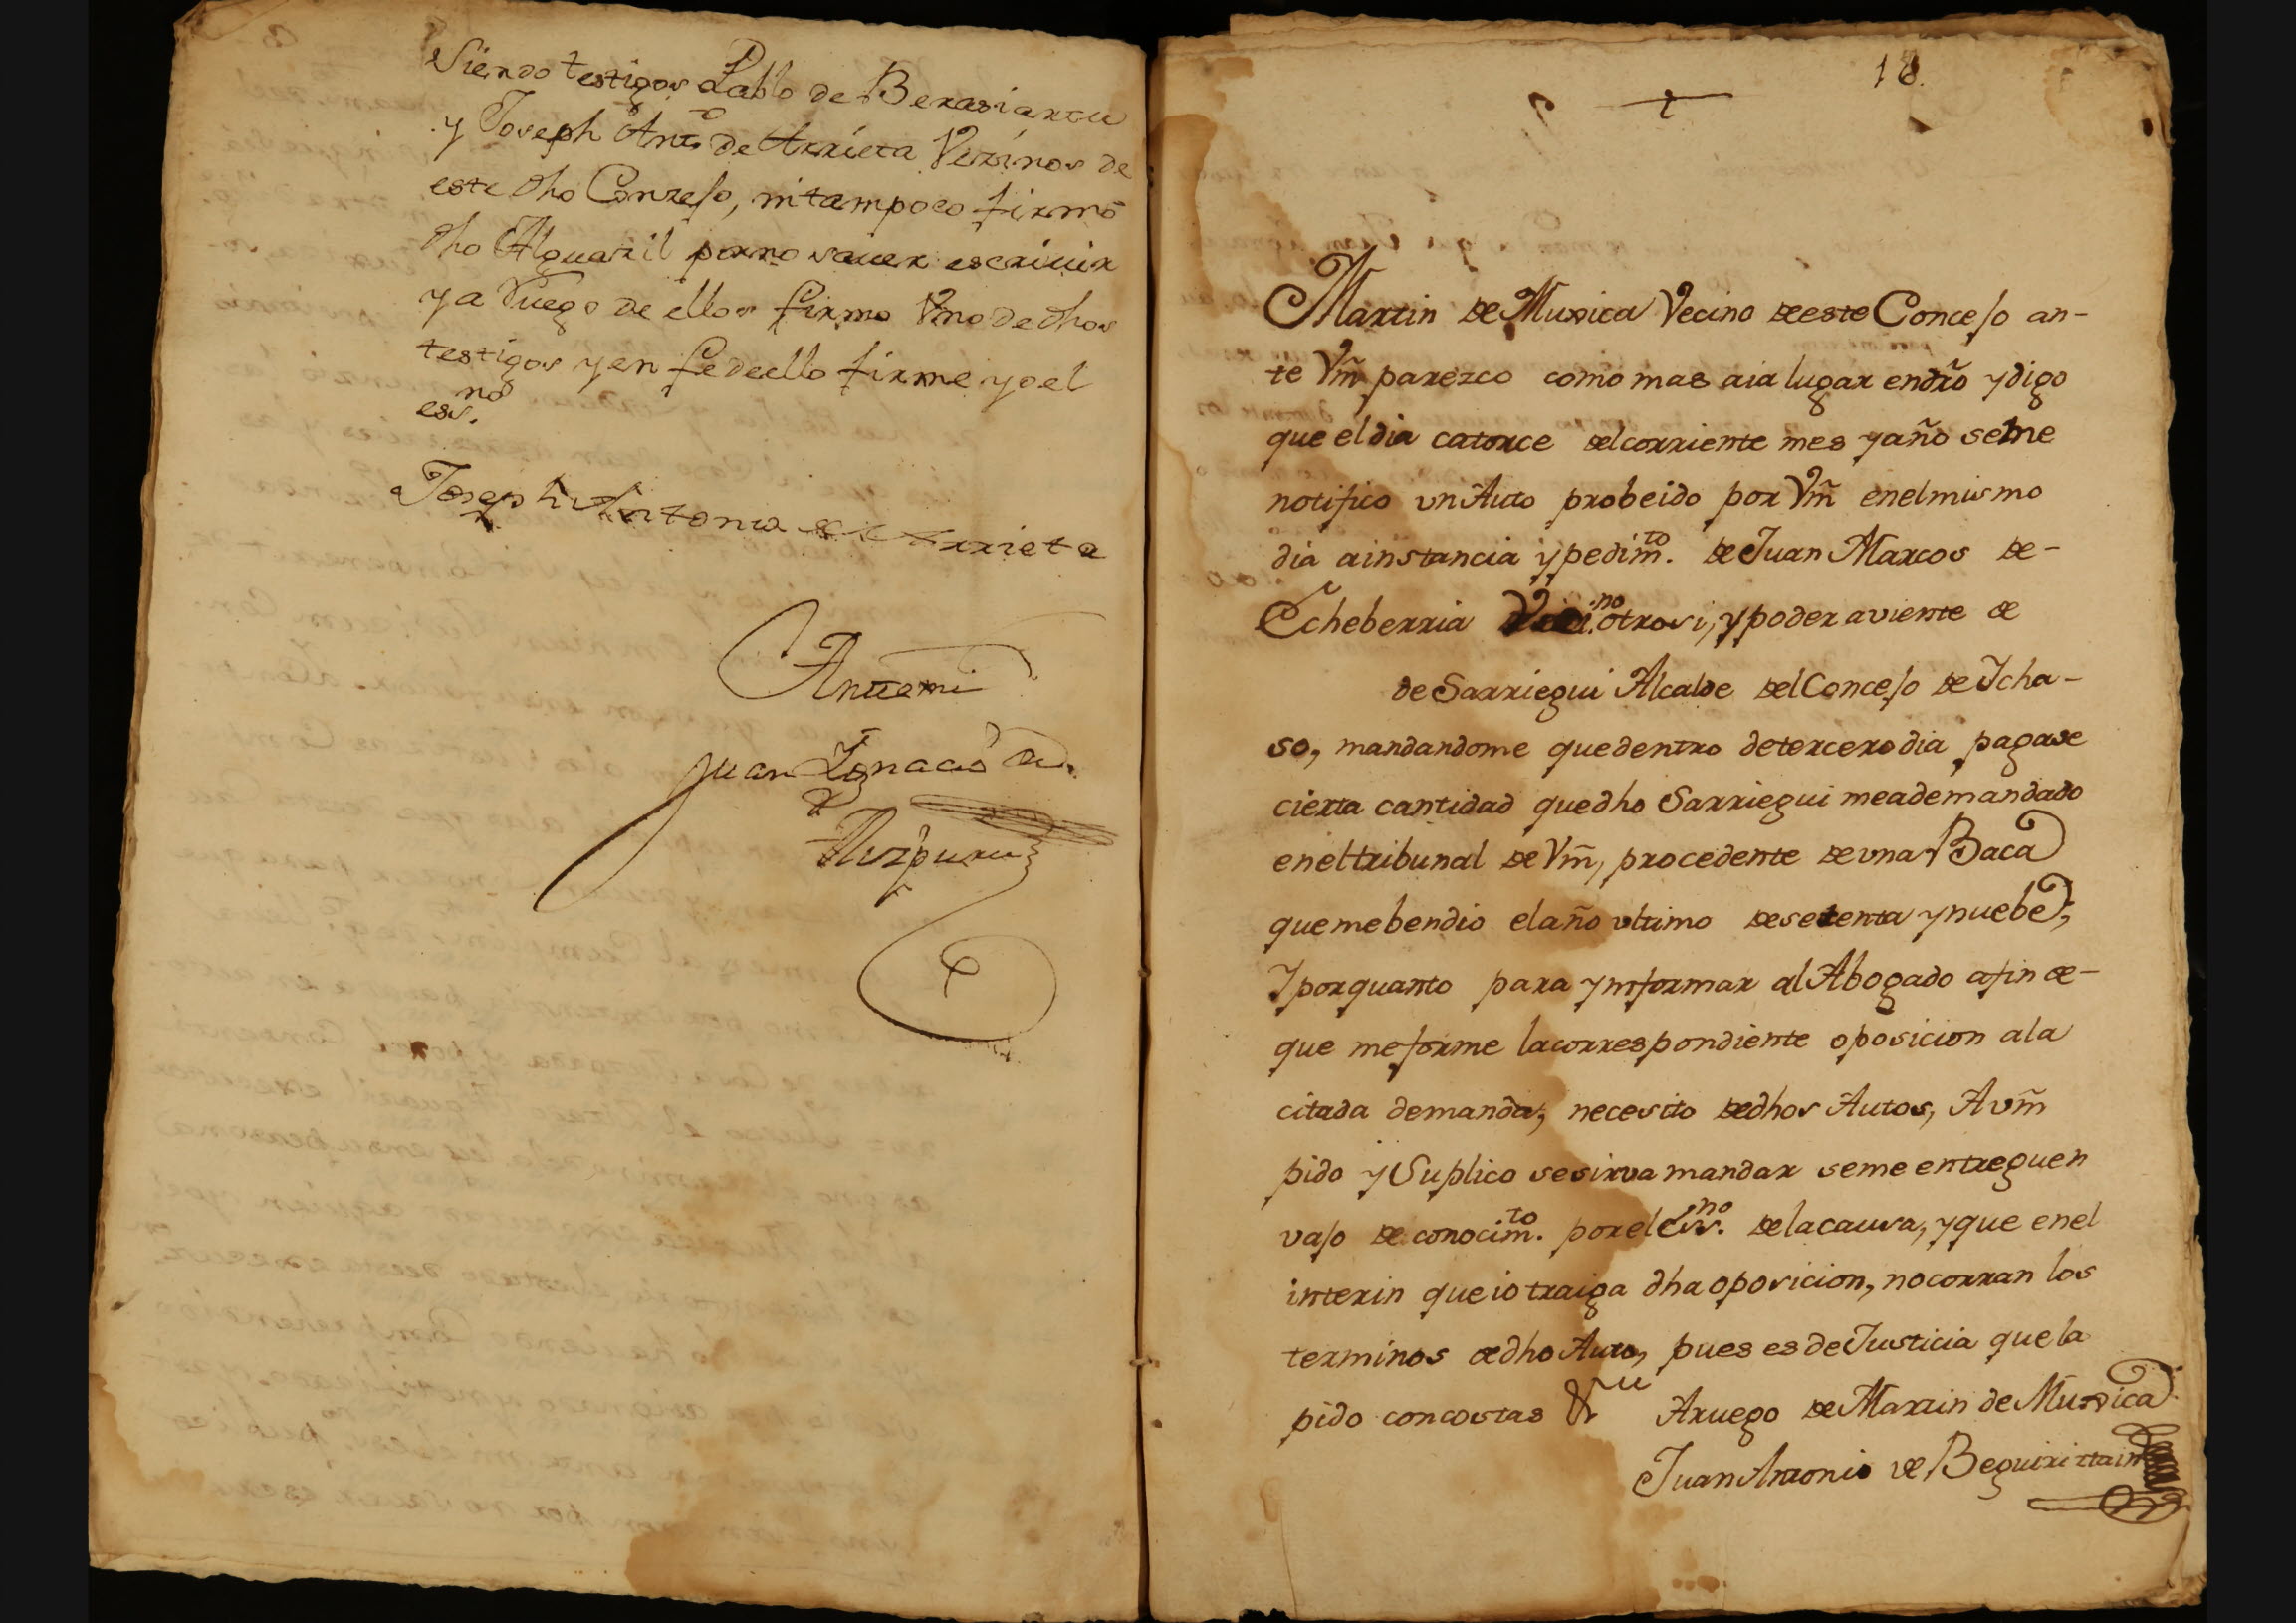 Siendo testigos Pablo de Berasiartu
y Joseph Ant.o de Arrieta Vezinos de
este dho Conzejo, ni tampoco firmó
dho Alguazil por no sauer escriuir
y a Ruego de ellos firmo Vno de dhos
testigos y en fe de ello firme yo el
ess.no
Joseph Antonio de Arrieta
Antemi
Juan Ignacio de
Aizpuru
18.
Martin de Muxica Vecino de este Concejo an-
te Vm̃ parezco como mas aia lugar en dro y digo
que el dia catorce del corriente mes y año se me
notifico vn Auto probeido por Vm̃ en el mismo
dia a instancia y pedim.to de Juan Marcos de-
Echeberria otrosi, y poder aviente de
de Sarriegui Alcalde del Concejo de Icha-
so, mandandome que dentro de tercero dia pagase
cierta cantidad que dho Sarriegui me a demandado
en el tribunal de Vm̃, procedente de vna Baca
que me bendio el año vltimo de setenta y nuebe;
Y por quanto para ynformar al Abogado a fin de-
que me forme la correspondiente oposicion a la
citada demanda, necesito de dhos Autos, A vm̃
pido y Suplico se sirva mandar se me entreguen
vajo de conocim.to por el ess.no de la causa, y que en el
interin que io traiga dha oposicion, no corran los
terminos de dho Auto, pues es de Justicia que la
pido con costas &
A ruego de Martin de Muxica
Juan Antonio de Beguiriztain